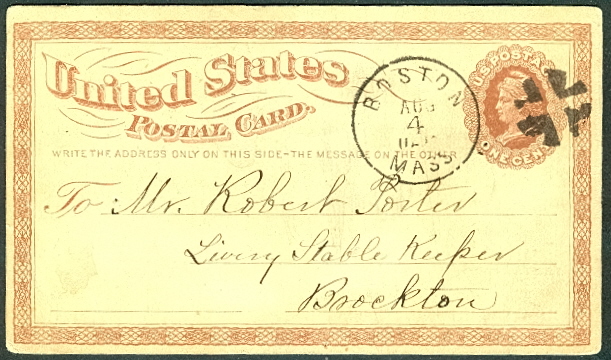 United States
POSTAL CARD.
WRITE THE ADDRESS ONLY ON THIS SIDE-THE MESSAGE ON THE OTHER
BOSTON
AUG
4
MASS
U.S. POSTAGE
ONE CENT
To Mr. Robert Porter
Livery Stable Keeper
Brockton